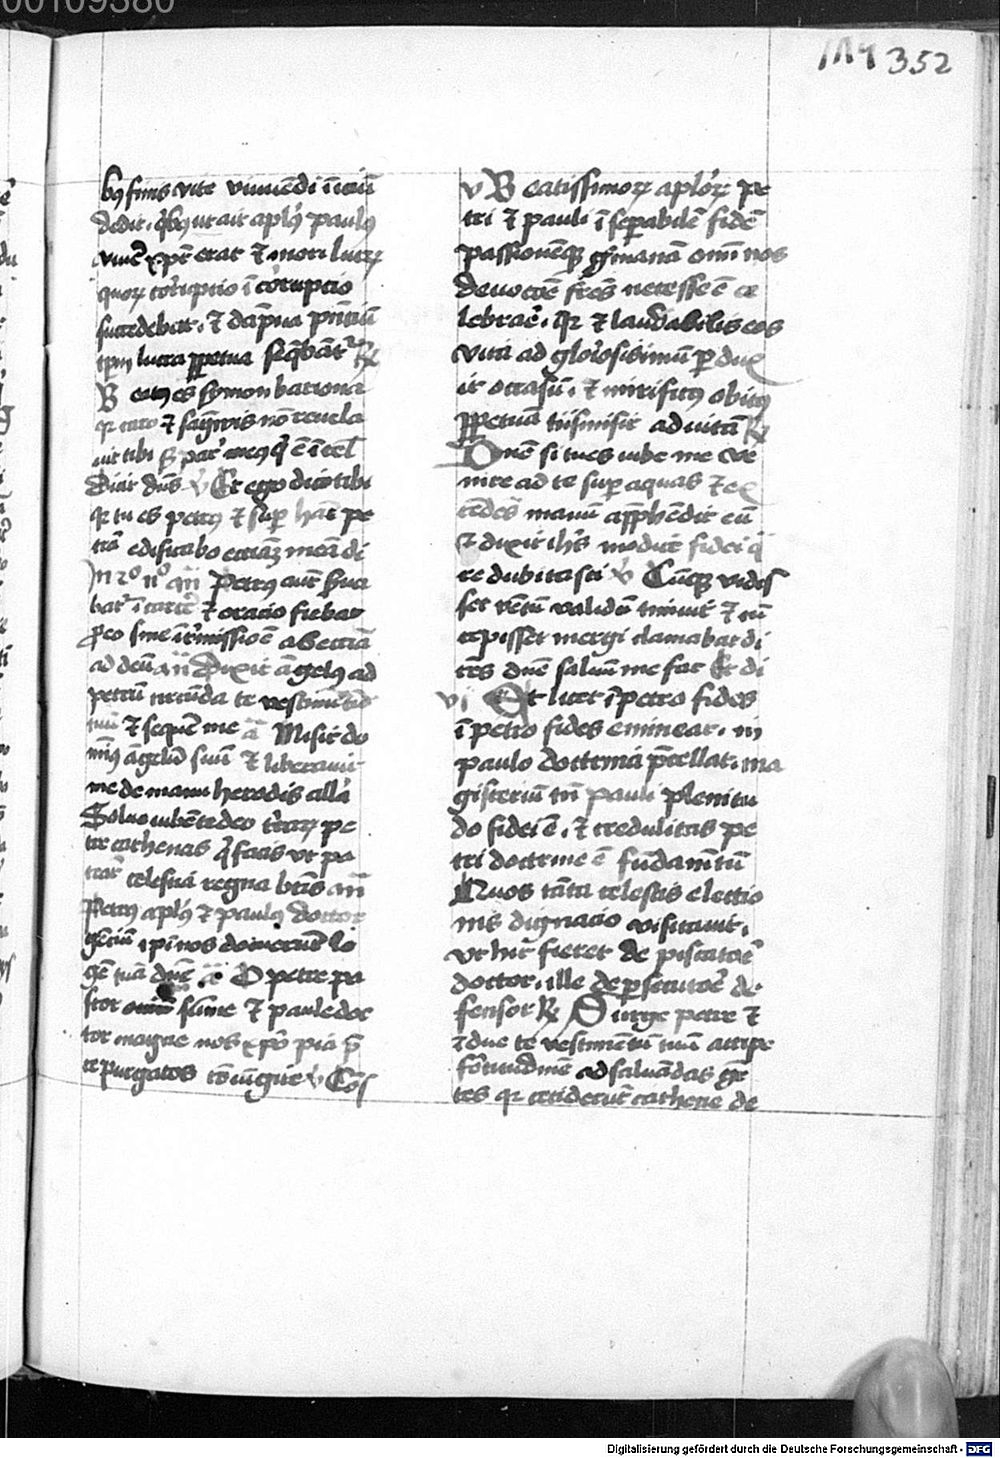 00109380
352
bꝯ finis vite viuuēdi initiū
dedit. qͥbꝯ ut ait aplꝰ paulꝰ
viuē xp̄c erat ⁊ mori lucrꝫ
quoꝝ corrupcio ī corrupcio
succedebat. ⁊ dāpna pn̄ciū
tpm lucra ꝑpetua seq̄bāt ℟
Beatꝰ es symon bariona
qꝛ caro ⁊ sāgwis nō reuela
uit tibi sꝫ pat̄ meꝰ qͥ ē ī cel̄
Dicit dn̄s ℣ Et ego dico tibi
qꝛ tu es petrꝰ ⁊ suꝑ hāc pe
trā edificabo ecciaꝫ meā di
In 2o no an̄ Petrus aut̄ serua
bat̄ ī carcē ⁊ oracio fiebat
ꝓ eo sine īt̄missiōe ab eccīa
ad deū an̄ Dixit āgelꝰ ad
petrū circūda te vestimētū
tuū ⁊ seque me an̄ Misit do
minꝰ āgelū suū ⁊ liberauit
me de manu herodis allā
Solue iubēte deo t̄raꝝ pe
tre cathenas qͥ facis vt pa
teāt celestia regna btīs an̄
Petrꝰ aplꝰ ⁊ paulꝰ doctor
gēciū ipi nos docuerūt le
gē tuā dn̄e an̄ O petre pa
stor sūme ⁊ paule doc
tor magne nos xpō pia ꝓ
ce purgatos cōiūgite ℣ Cōs
v Beatissimoꝝ aploꝝ pe
tri ⁊ pauli īseꝑabilē fidē
passionēqꝫ gͥmanā om̄i nos
deuocōe fr̄es necesse ē ce
lebrae. qꝛ ⁊ laudabilis eos
vita ad gloriosissimū ꝑdux
it occasū. ⁊ mirificꝰ obitꝰ
ꝑpetuā trāsmisit ad vitā ℟
Dn̄e si tu es iube me ve
nire ad te suꝑ aquas ⁊ ex
tēdēs manū appͣhēdit eū
⁊ dixit ihꝰ modice fidei qͣ
re dubitasti ℣ Cūqꝫ vidis
set vētū validū timuit ⁊ cū
cepisset mergi clamabat di
cēs dn̄e saluū me fac Et di
vi Et licet ī petro fides
ī petro fides emineat. in
paulo doctrina p̄cellat. ma
gisteriū tn̄ pauli plenitu
do fidei ē. ⁊ credulitas pe
tri doctrine ē fūdamētū
Quos tāta celestis electio
nis dignacio visitauit.
vt hic fieret de piscatoē
doctor. ille de ꝑsecutoē de
fensor ℟ Surge petre ⁊
īdue te vestimētū tuū accipe
fortitudinē ad saluādas gē
tes qꝛ ceciderūt cathene de
Digitalisierung gefördert durch die Deutsche Forschungsgemeinschaft - DFG